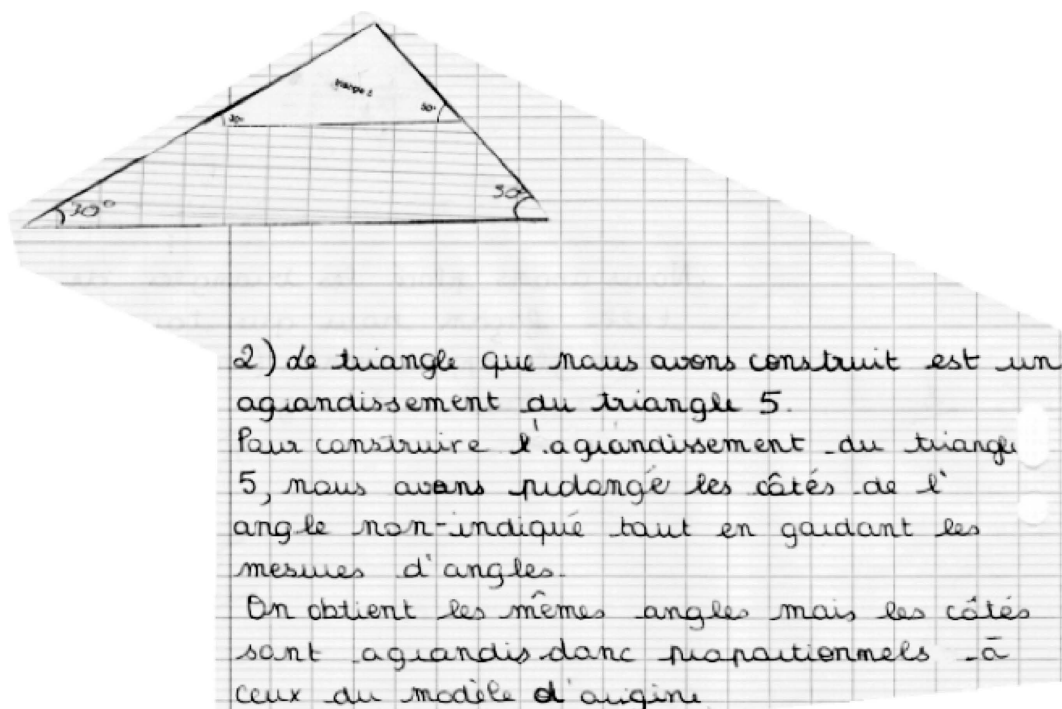 triangle 5
30°
50°
30°
50
2) Le triangle que nous avons construit est un
agrandissement du triangle 5.
Pour construire l'agrandissement du triangle
5, nous avons prolongé les côtés de l'
angle non-indiqué tout en gardant les
mesures d'angles.
On obtient les mêmes angles mais les côtés
sont agrandis donc proportionnels à
ceux du modèle d'origine